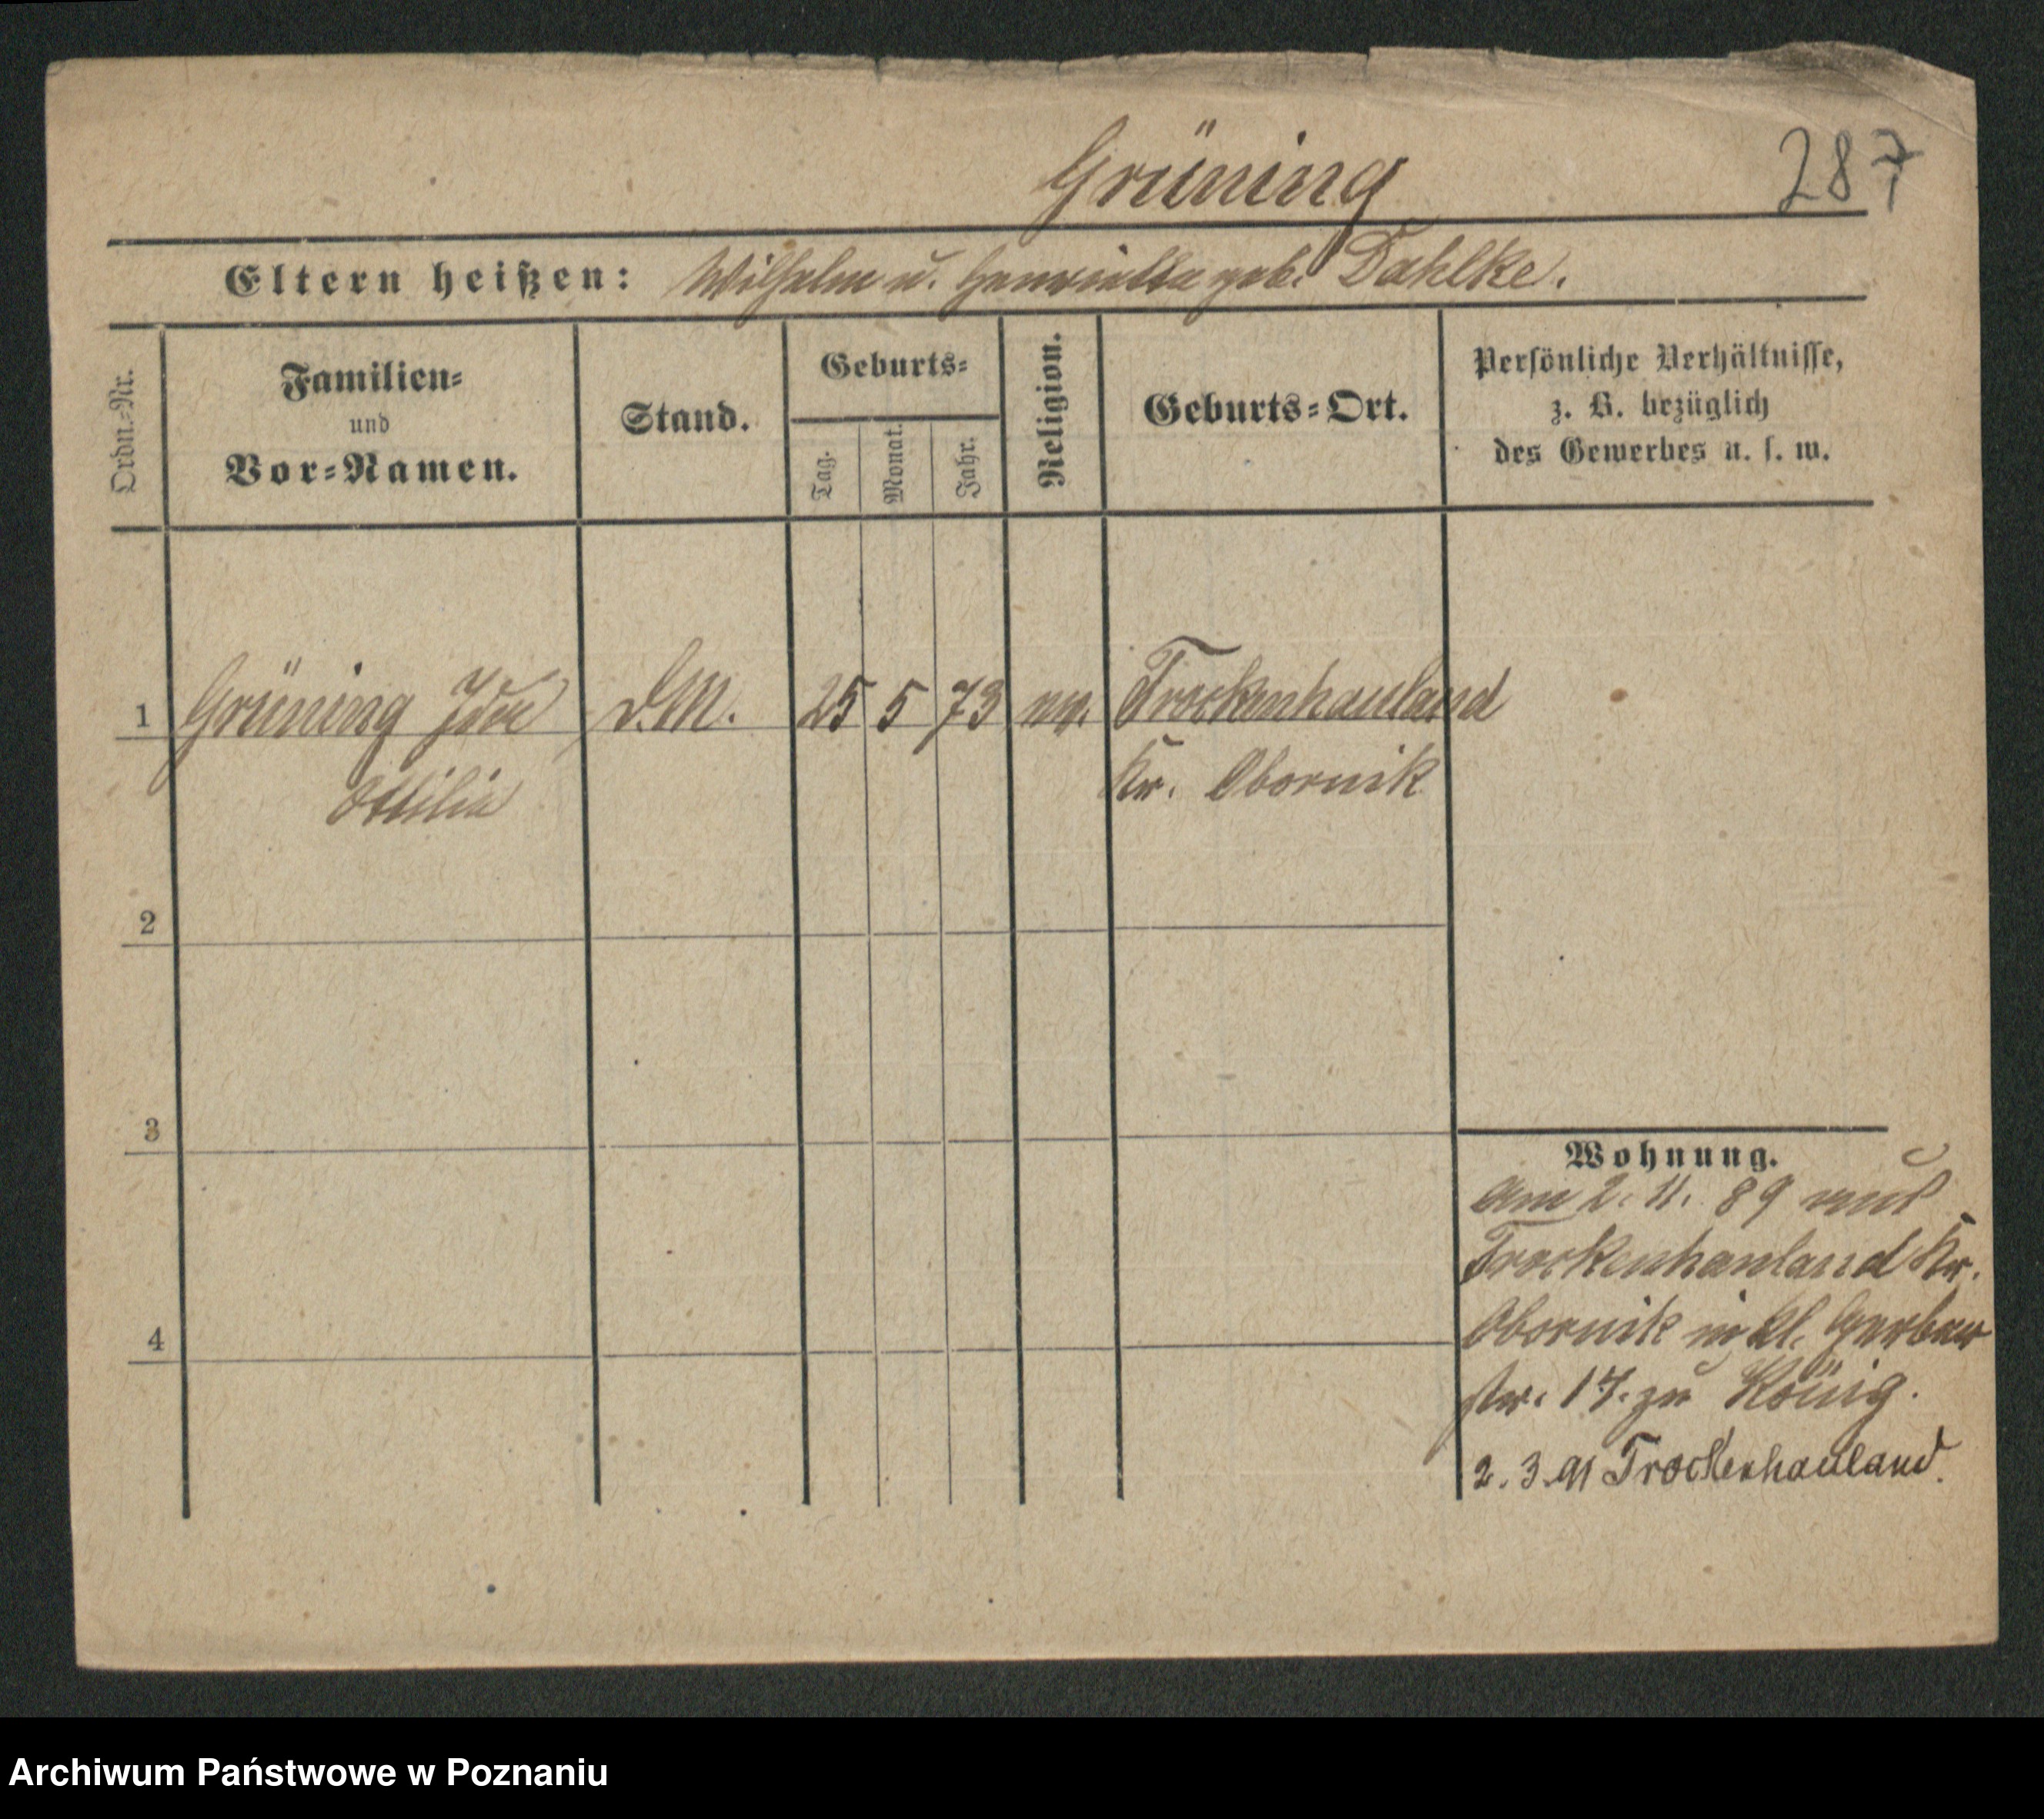 Grüning
287
Eltern heißen: Wilhelm u. Henriette geb. Dahlke.
Ordn.-Nr.
Familien-
und
Vor-Namen.
Stand.
Geburts-
Tag.
Monat.
Jahr.
Religion.
Geburts-Ort.
Persönliche Verhältnisse,
z. B. bezüglich
des Gewerbes u. s. w.
1 Grüning Ida D.M. 25 5 73 ev. Trockenhauland
Ottilie
Kr. Obornik
2
3
4
Wohnung.
Am 2. 11. 89 aus
Trockenhauland Kr.
Obornik in kl. Gerber
str. 17. zu König.
2. 3. 91 Trockenhauland.
Archiwum Państwowe w Poznaniu